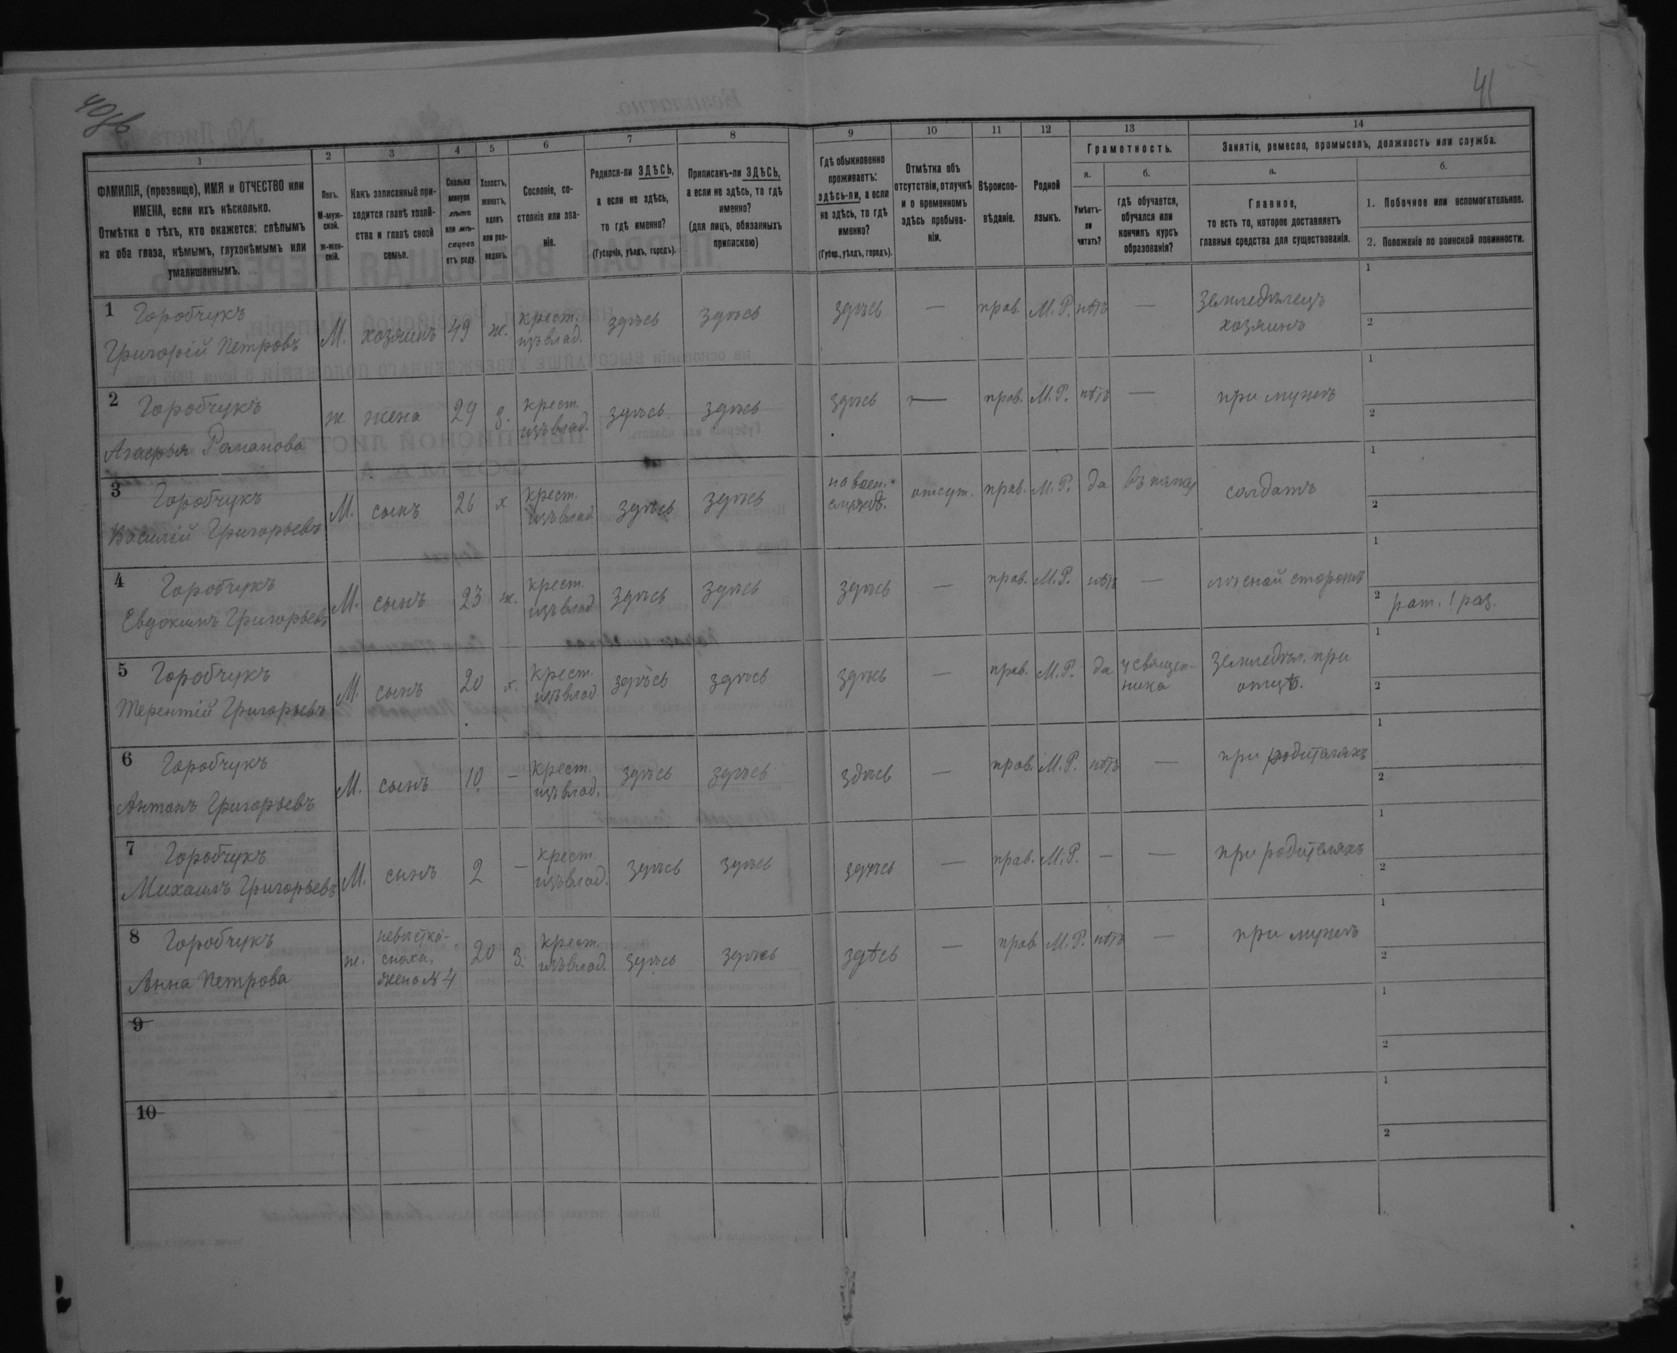 40об
41
1
2
3
4
5
6
7
8
9
10
11
12
13
14
ФАМИЛІЯ, (прозвище), ИМЯ и ОТЧЕСТВО или
ИМЕНА, если ихъ нѣсколько.
Отмѣтка о тѣхъ, кто окажется: слѣпымъ
на оба глаза, нѣмымъ, глухонѣмымъ или
умалишеннымъ.
Полъ.
М-муж-
ской.
Ж-жен-
скій.
Какъ записанный при-
ходится главѣ хозяй-
ства и главѣ своей
семьи.
Сколько
минуло
лѣтъ
или мѣ-
сяцевъ
отъ роду.
Холостъ,
женатъ,
вдовъ
или раз-
веденъ.
Сословіе, со-
стояніе или зва-
ніе.
Родился-ли ЗДѢСЬ,
а если не здѣсь,
то гдѣ именно?
(Губернія, уѣздъ, городъ).
Приписанъ-ли ЗДѢСЬ,
а если не здѣсь, то гдѣ
именно?
(для лицъ, обязанныхъ
припискою)
Гдѣ обыкновенно
проживаетъ:
здѣсь-ли, а если
не здѣсь, то гдѣ
именно?
(Губер., уѣздъ, городъ).
Отмѣтка объ
отсутствіи, отлучкѣ
и о временномъ
здѣсь пребыва-
ніи.
Вѣроиспо-
вѣданіе.
Родной
языкъ.
Грамотность.
а.
Умѣетъ-
ли
читать?
б.
гдѣ обучается,
обучался или
кончилъ курсъ
образованія?
Занятіе, ремесло, промыселъ, должность или служба.
а.
Главное,
то есть то, которое доставляетъ
главныя средства для существованія.
б.
1. Побочное или вспомогательное.
2. Положеніе по воинской повинности.
1 Горобчукъ
Григорій Петровъ
М. хозяинъ 49 ж. крест. изъ влад. здѣсь здѣсь здѣсь — прав. М.Р. нѣтъ — земледѣлецъ
хозяинъ
1
2
2 Горобчукъ
Агафья Романова
ж жена 29 з. крест. изъ влад. здѣсь здѣсь здѣсь — прав. М.Р. нѣтъ — при мужѣ
1
2
3 Горобчукъ
Василій Григорьевъ
М. сынъ 26 х крест. изъ влад здѣсь здѣсь на воен. службѣ. отсут. прав. М.Р. да солдатъ
1
2
4 Горобчукъ
Евдокимъ Григорьевъ
М. сынъ 23 ж. крест. изъ влад здѣсь здѣсь здѣсь — прав. М.Р. нѣтъ — лѣсной сторожъ
1
2 рат. 1 раз.
5 Горобчукъ
Терентій Григорьевъ
М. сынъ 20 х. крест. изъ влад. здѣсь здѣсь здѣсь — прав. М.Р. да у священ-
ника земледѣл. при
отцѣ.
1
2
6 Горобчукъ
Антонъ Григорьевъ
М. сынъ 10 — крест. изъ влад. здѣсь здѣсь здѣсь — прав. М.Р. нѣтъ — при родителяхъ
1
2
7 Горобчукъ
Михаилъ Григорьевъ
М. сынъ 2 — крест. изъ влад. здѣсь здѣсь здѣсь — прав. М.Р. — — при родителяхъ
1
2
8 Горобчукъ
Анна Петрова
ж. невѣстка-
сноха,
жена №4 20 з. крест. изъ влад. здѣсь здѣсь здѣсь — прав М.Р. нѣтъ — при мужѣ
1
2
9
1
2
10
1
2